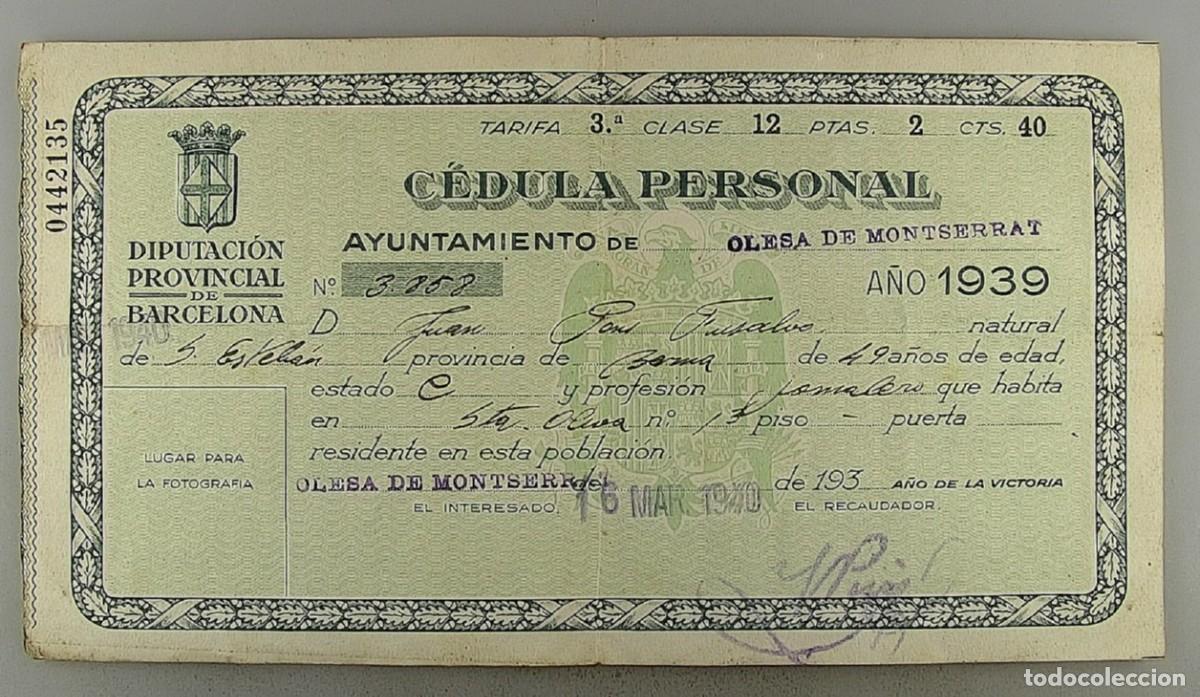 0442135
TARIFA 3.ª CLASE 12 PTAS. 2 CTS. 40
CÉDULA PERSONAL
DIPUTACIÓN
PROVINCIAL
DE
BARCELONA
AYUNTAMIENTO DE OLESA DE MONTSERRAT
Nº. 3.858 AÑO 1939
D Juan Pons natural
1940
de S. Esteban provincia de Barna de 49 años de edad,
estado C y profesión jornalero que habita
en Sta. Oliva nº piso - puerta
residente en esta población.
LUGAR PARA
LA FOTOGRAFIA
OLESA DE MONTSERRAT de 16 MAR 1940 de 193 AÑO DE LA VICTORIA
EL INTERESADO. EL RECAUDADOR.
todocoleccion